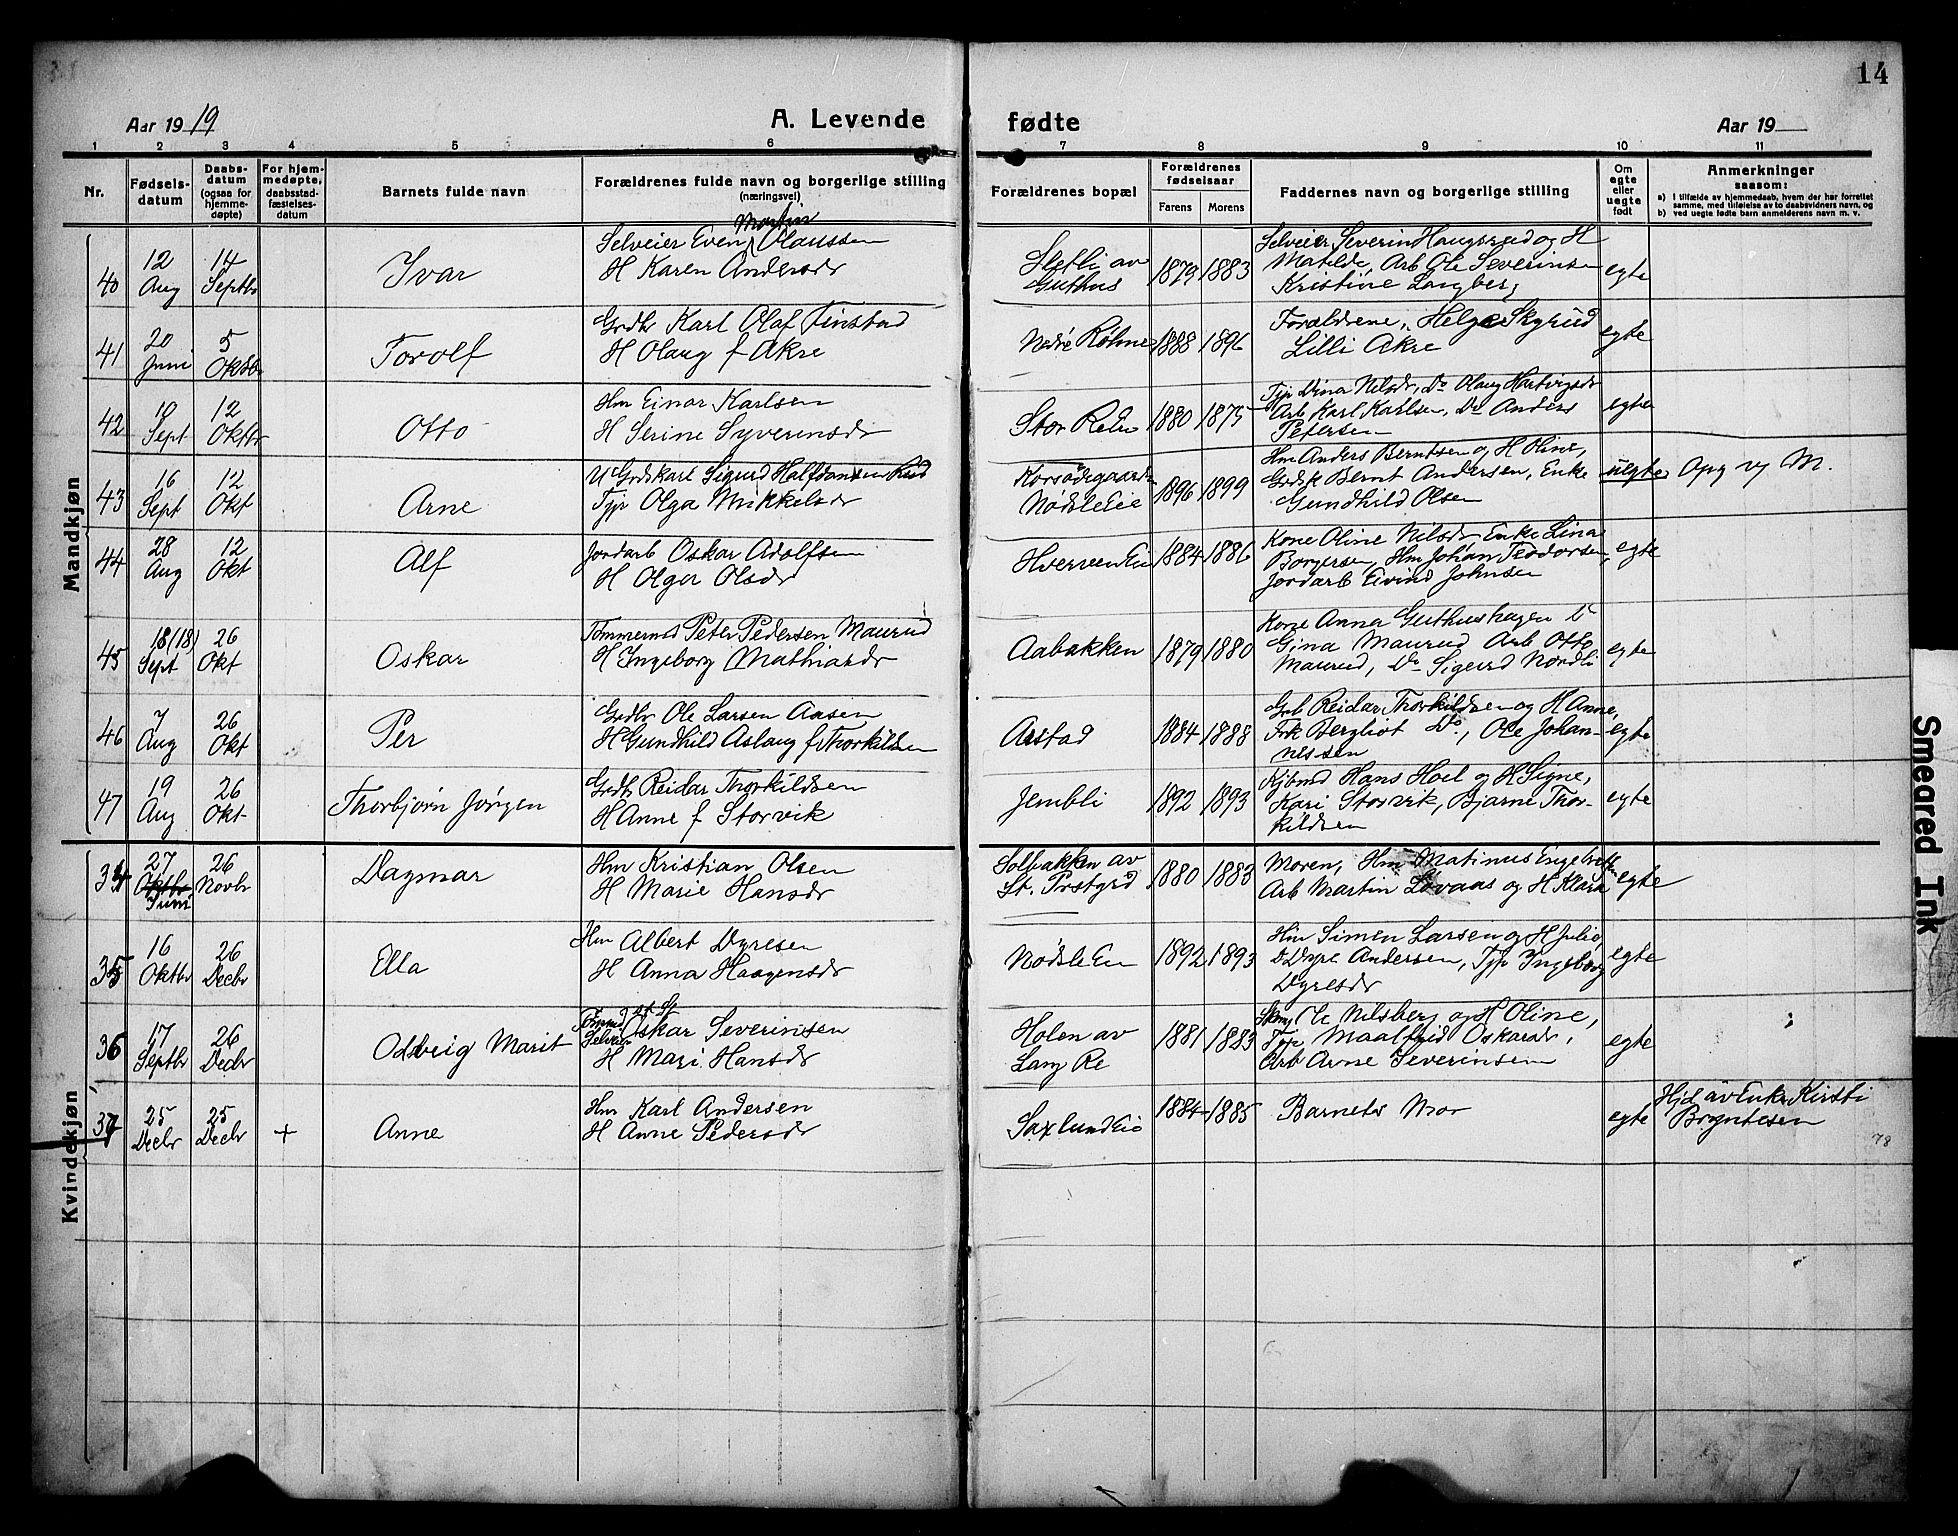 14
Aar 1919
A. Levende fødte
Aar 19
1 2 3 4 5 6 7 8 9 10 11
Nr.
Fødsels-
datum
Daabs-
datum
(ogsaa for
hjemme-
døpte)
For hjem-
medøpte,
daabsstad-
fæstelses-
datum
Barnets fulde navn
Forældrenes fulde navn og borgerlige stilling
(næringsvei)
Forældrenes bopæl
Forældrenes
fødselsaar
Farens
Morens
Faddernes navn og borgerlige stilling
Om
egte
eller
uegte
født
Anmerkninger
saasom:
a) i tilfælde av hjemmedaab, hvem der har forrettet
samme, med tilføielse av to daabsvidners navn, og
b) ved uegte fødte barn anmelderens navn m. v.
Mandkjøn
40
12
Aug
14
Septbr
Ivar
Martin
Selveier Even Olaussen
H Karen Andersdr
Sletli av
Guthus
1879 1883
Selveier Severin Haugsrud og H
Matilde, Arb Ole Severinsen
Kristine Langberg
egte
41
20
Juni
5
Oktbr
Torolf
Grdbr Karl Olaf Finstad
H Olaug f Akre
Nedre Røhne
1888 1896
Forældrene, Helge Skyrud
Lilli Akre
egte
42
10
Sept
12
Oktbr
Otto
Hm Einar Karlsen
H Serine Syverinsdr
Stor Rehn
1880 1875
Tjp Dina Nilsdr, Do Olaug Hartvigsdr
Arb Karl Karlsen, Do Anders
Petersen
egte
43
16
Sept
12
Okt
Arne
U Grdskarl Sigurd Halfdansen Ruud
Tjp Olga Mikkelsdr
Korsødegaarden
Nødsle Eie
1896 1899
Hm Anders Berntsen og H Oline,
Grdsk Bernt Andersen, Enke
Gundhild Olsen
uegte
Opg v M.
44
28
Aug
12
Okt
Alf
Jordarb Oskar Adolfsen
H Olga Olsdr
Hverven Eie
1884 1886
Kone Oline Nilsdr Enke Lina
Borgersen, Hm Johan Teodorsen,
Jordarb Eivind Johnsen
egte
45
18 (18)
Sept
26
Okt
Oskar
Tømmermd Peter Pedersen Maurud
H Ingeborg Mathiasdr
Aabakken
1879 1880
Kone Anna Guthushagen Do
Gina Maurud Arb Otto
Maurud, Do Sigurd Nordli
egte
46
7
Aug
26
Okt
Per
Grdbr Ole Larsen Aasen
H Gundhild Aslaug f Thorkildsen
Aastad
1884 1888
Grb Reidar Thorkildsen og H Anne,
Frk Bergliot Do, Ole Johan-
nessen
egte
47
19
Aug
26
Okt
Thorbjørn Jørgen
Grdb Reidar Thorkildsen
H Anne f Storvik
Jembli
1892 1893
Kjbmd Hans Hoel og H Signe,
Kari Storvik, Bjarne Thor-
kildsen
egte
Kvindekjøn
34
27
Oktbr
Juni
26
Novbr
Dagmar
Hm Kristian Olsen
H Marie Hansdr
Solbakken av
St. Prstgrd
1880 1883
Moren, Hm Matinus Engebretsen
Arb Martin Løvaas og H Klara
egte
35
16
Oktbr
26
Decbr
Ella
Hm Albert Dyresen
H Anna Haagensdr
Nødsle Eie
1892 1893
Hm Simen Larsen og H Julie,
Dyre Andersen, Tjp Ingeborg
Dyresdr
egte
36
17
Septbr
26
Decbr
Oddveig Marit
Oskar Severinsen
H Mari Hansdr
Holen av
Lang Re
1881 1883
Ole Nilsberg og H Oline,
Tjp Maalfrid Oskarsdr,
Arb Arne Severinsen
egte
37
25
Decbr
25
Decbr
+
Anne
Hm Karl Andersen
H Anne Pedersdr
Saxlund Eie
1884 1885
Barnets Mor
egte
Hjd av Enke Kirsti
Bryntesen
78
Smeared Ink